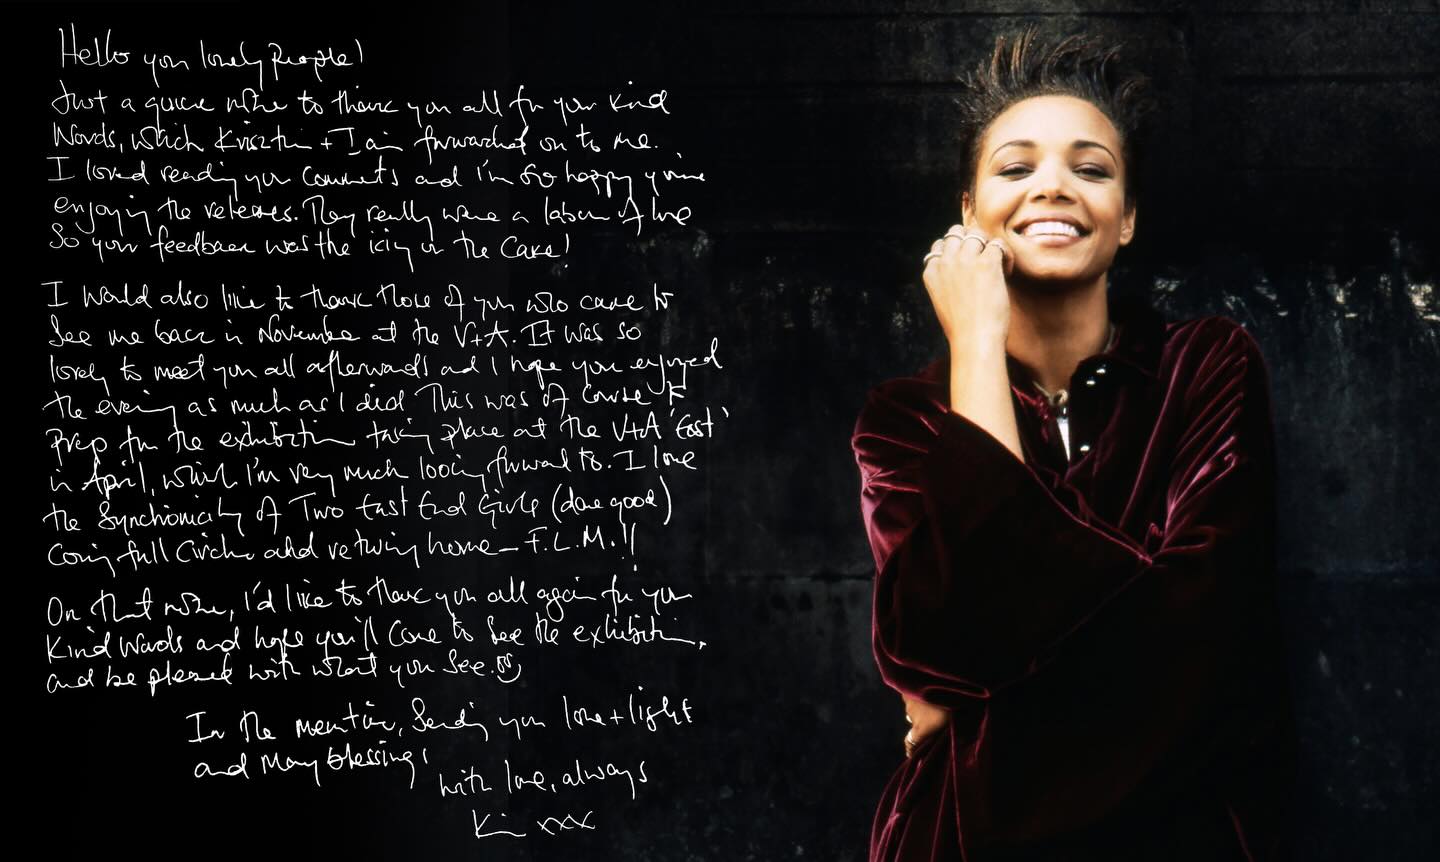 Hello you lovely people!
Just a quick note to thank you all for your kind
words, which Krisztin + Iain forwarded on to me.
I loved reading your comments and I'm so happy you're
enjoying the releases. They really were a labour of love
so your feedback was the icing on the cake!
I would also like to thank those of you who came to
see me back in November at the V+A. It was so
lovely to meet you all afterwards and I hope you enjoyed
the evening as much as I did. This was of course to
prep for the exhibition taking place at the V+A 'East'
in April, which I'm very much looking forward to. I love
the synchronicity of Two East End Girls (done good)
coming full circle and returning home - F.L.M.!!
On that note, I'd like to thank you all again for your
kind words and hope you'll come to see the exhibition,
and be pleased with what you see.
In the meantime, sending you love + light
and many blessings,
with love, always
Kim xxx